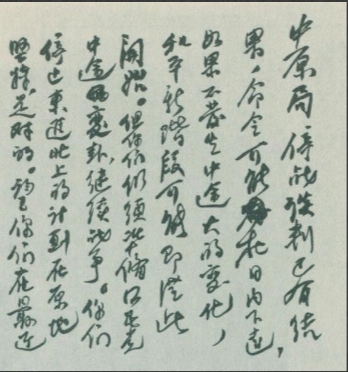 中原局:停战谈判已有结
果,命令可能在日内下达,
如果不发生中途大的变化,
和平新阶段可能即从此
開始。但你们仍须准備国民党
中途变卦,继续战争。你们
停止東进北上的计划在原地
坚持是对的。望你们在最近